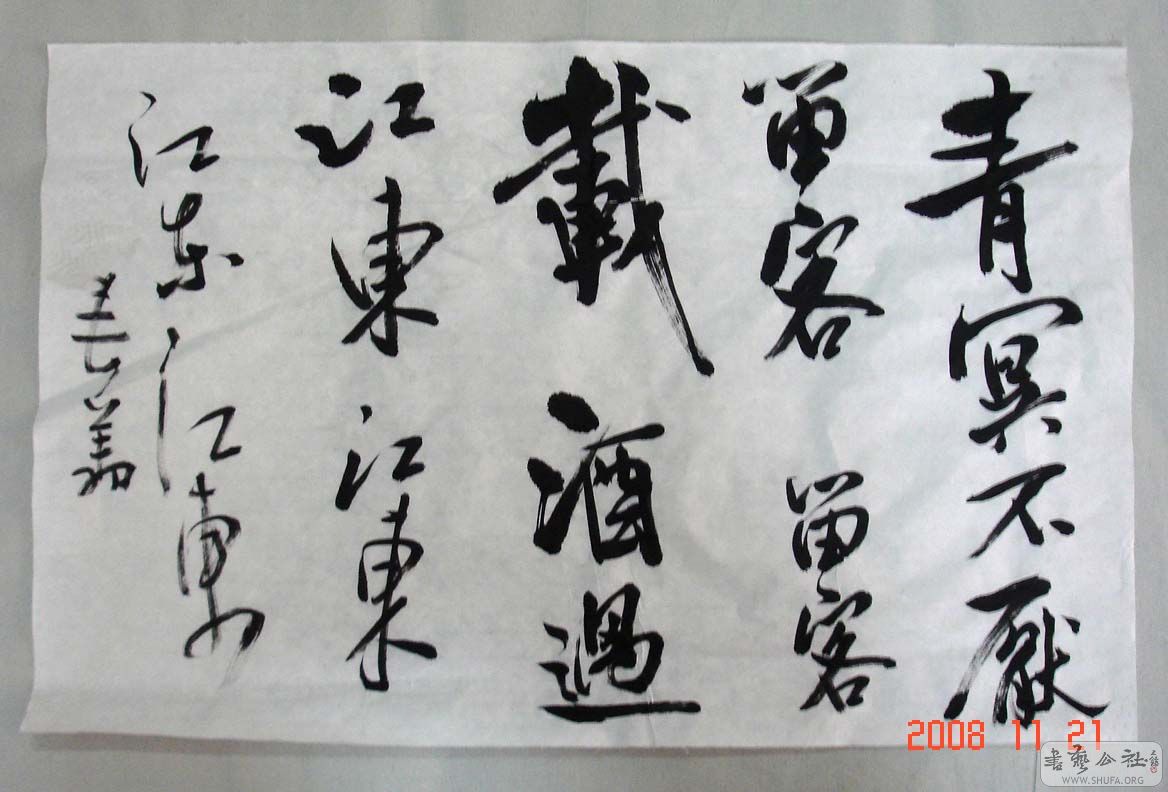 青冥不厭
留客留客
載酒過
江東江東
江东江東
翁
2008 11 21
書藝公社
WWW.SHUFA.ORG